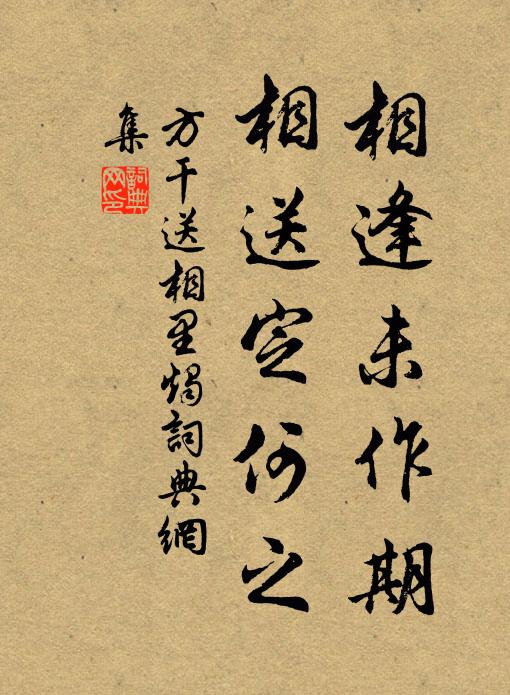 相逢未作期
相送定何之
方干送相里烛詞典網
集
詞典
网印